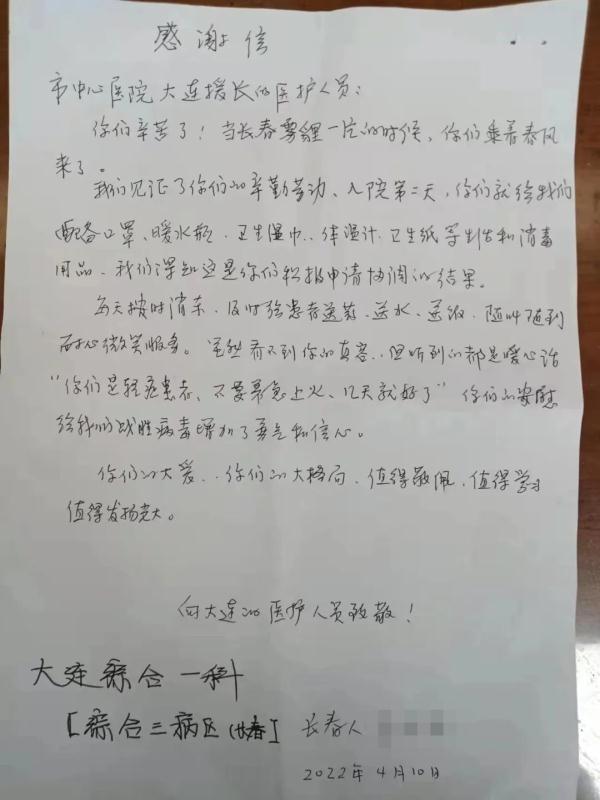 感谢信
市中心医院大连援长的医护人员：
你们辛苦了！当长春雾霾一片的时候，你们乘着春风
来了。
我们见证了你们的辛勤劳动、入院第二天，你们就给我们
配备口罩、暖水瓶、卫生湿巾、体温计、卫生纸等生活和消毒
用品、我们得知这是你们积极申请协调的结果。
每天按时消杀，及时给患者送药、送水、送饭，随叫随到
耐心微笑服务。虽然看不到你的真容、但听到的都是暖心话
“你们是轻症患者、不要着急上火、几天就好了”你们的安慰
给我们战胜病毒增加了勇气和信心。
你们的大爱、你们的大格局、值得敬佩、值得学习
值得发扬光大。
向大连的医护人员致敬！
大连综合一科
[综合三病区(长春)] 长春人
2022年4月10日